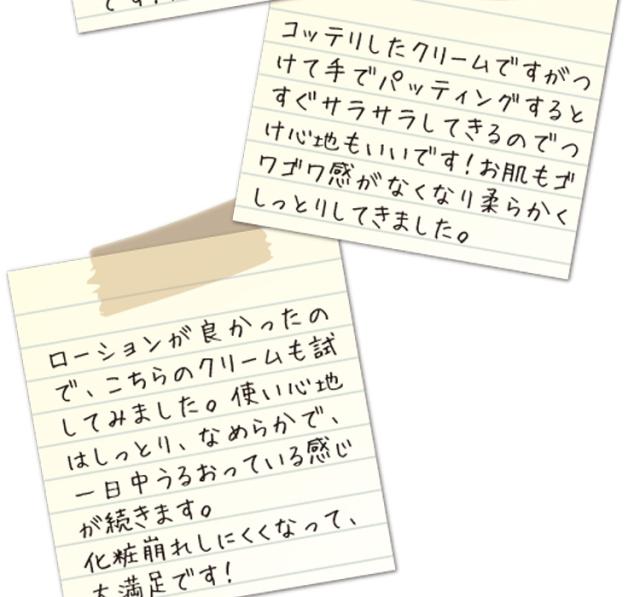 です!
コッテリしたクリームですがつ
けて手でパッティングすると
すぐサラサラしてきるのでつ
け心地もいいです!お肌もゴ
ワゴワ感がなくなり柔らかく
しっとりしてきました。
ローションが良かったの
で、こちらのクリームも試
してみました。使い心地
はしっとり、なめらかで、
一日中うるおっている感じ
が続きます。
化粧崩れしにくくなって、
大満足です!